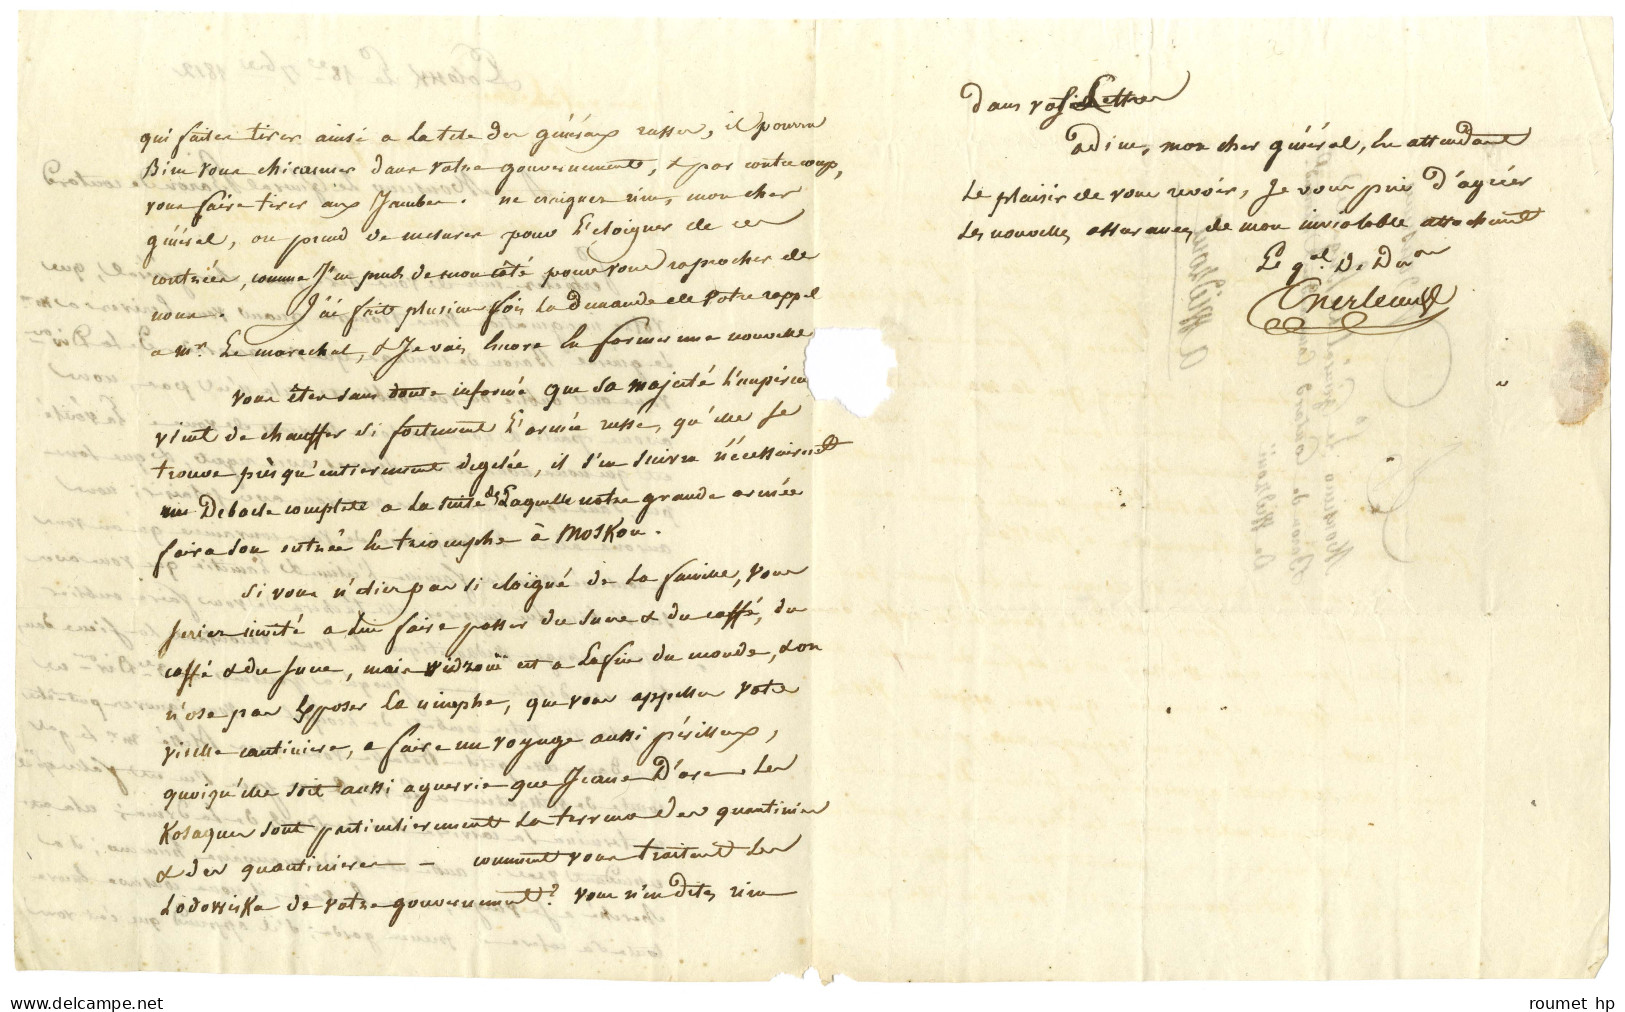 qui faites tirer ainsi a la tete des généraux russes, il pourra
Bien vous chicanner dans votre gouvernement, & par contre coup,
vous faire tirer aux Jambes. ne craignez rien, mon cher
général, on prend des mesures pour l'eloigner de ces
contrées, comme J'en prends de mon côté pour vous raprocher de
nous. J'ai fait plusieurs fois la demande de votre rappel
a mr. Le marechal, & Je vais encore en former une nouvelle
vous êtes sans doute informé que sa majesté l'empereur
vient de chauffer si fortement l'armée russe, qu'elle se
trouve presqu'entierement degelée, il s'en suivra nécessairement
une Debacle complette a la suite de Laquelle notre grande armée
faira son entrée en triomphe à Moskou.
Si vous n'etiez pas si eloigné de la famille, vous
seriez invité a lui faire passer du sucre & du caffé, du
caffé & du sucre, mais Vidzouï est a la fin du monde, & on
n'ose pas Exposer la nimphe, que vous appellez votre
vieille cantiniere, a faire un voyage aussi périlleux,
quoiqu'elle soit aussi aguerrie que Jeanne D'arc. Les
Kosaques sont particulierement la terreur des quantinier
& des quantinieres — comment vous traitent les
Lodoviska de votre gouvernement? vous n'en dites rien
Dans vos Lettres
adieu, mon cher général, en attendant
Le plaisir de vous revoir, Je vous prie d'agréer
Les nouvelles assurances de mon inviolable attachement
Le gal. D. Don
roumet hp delcampe.net